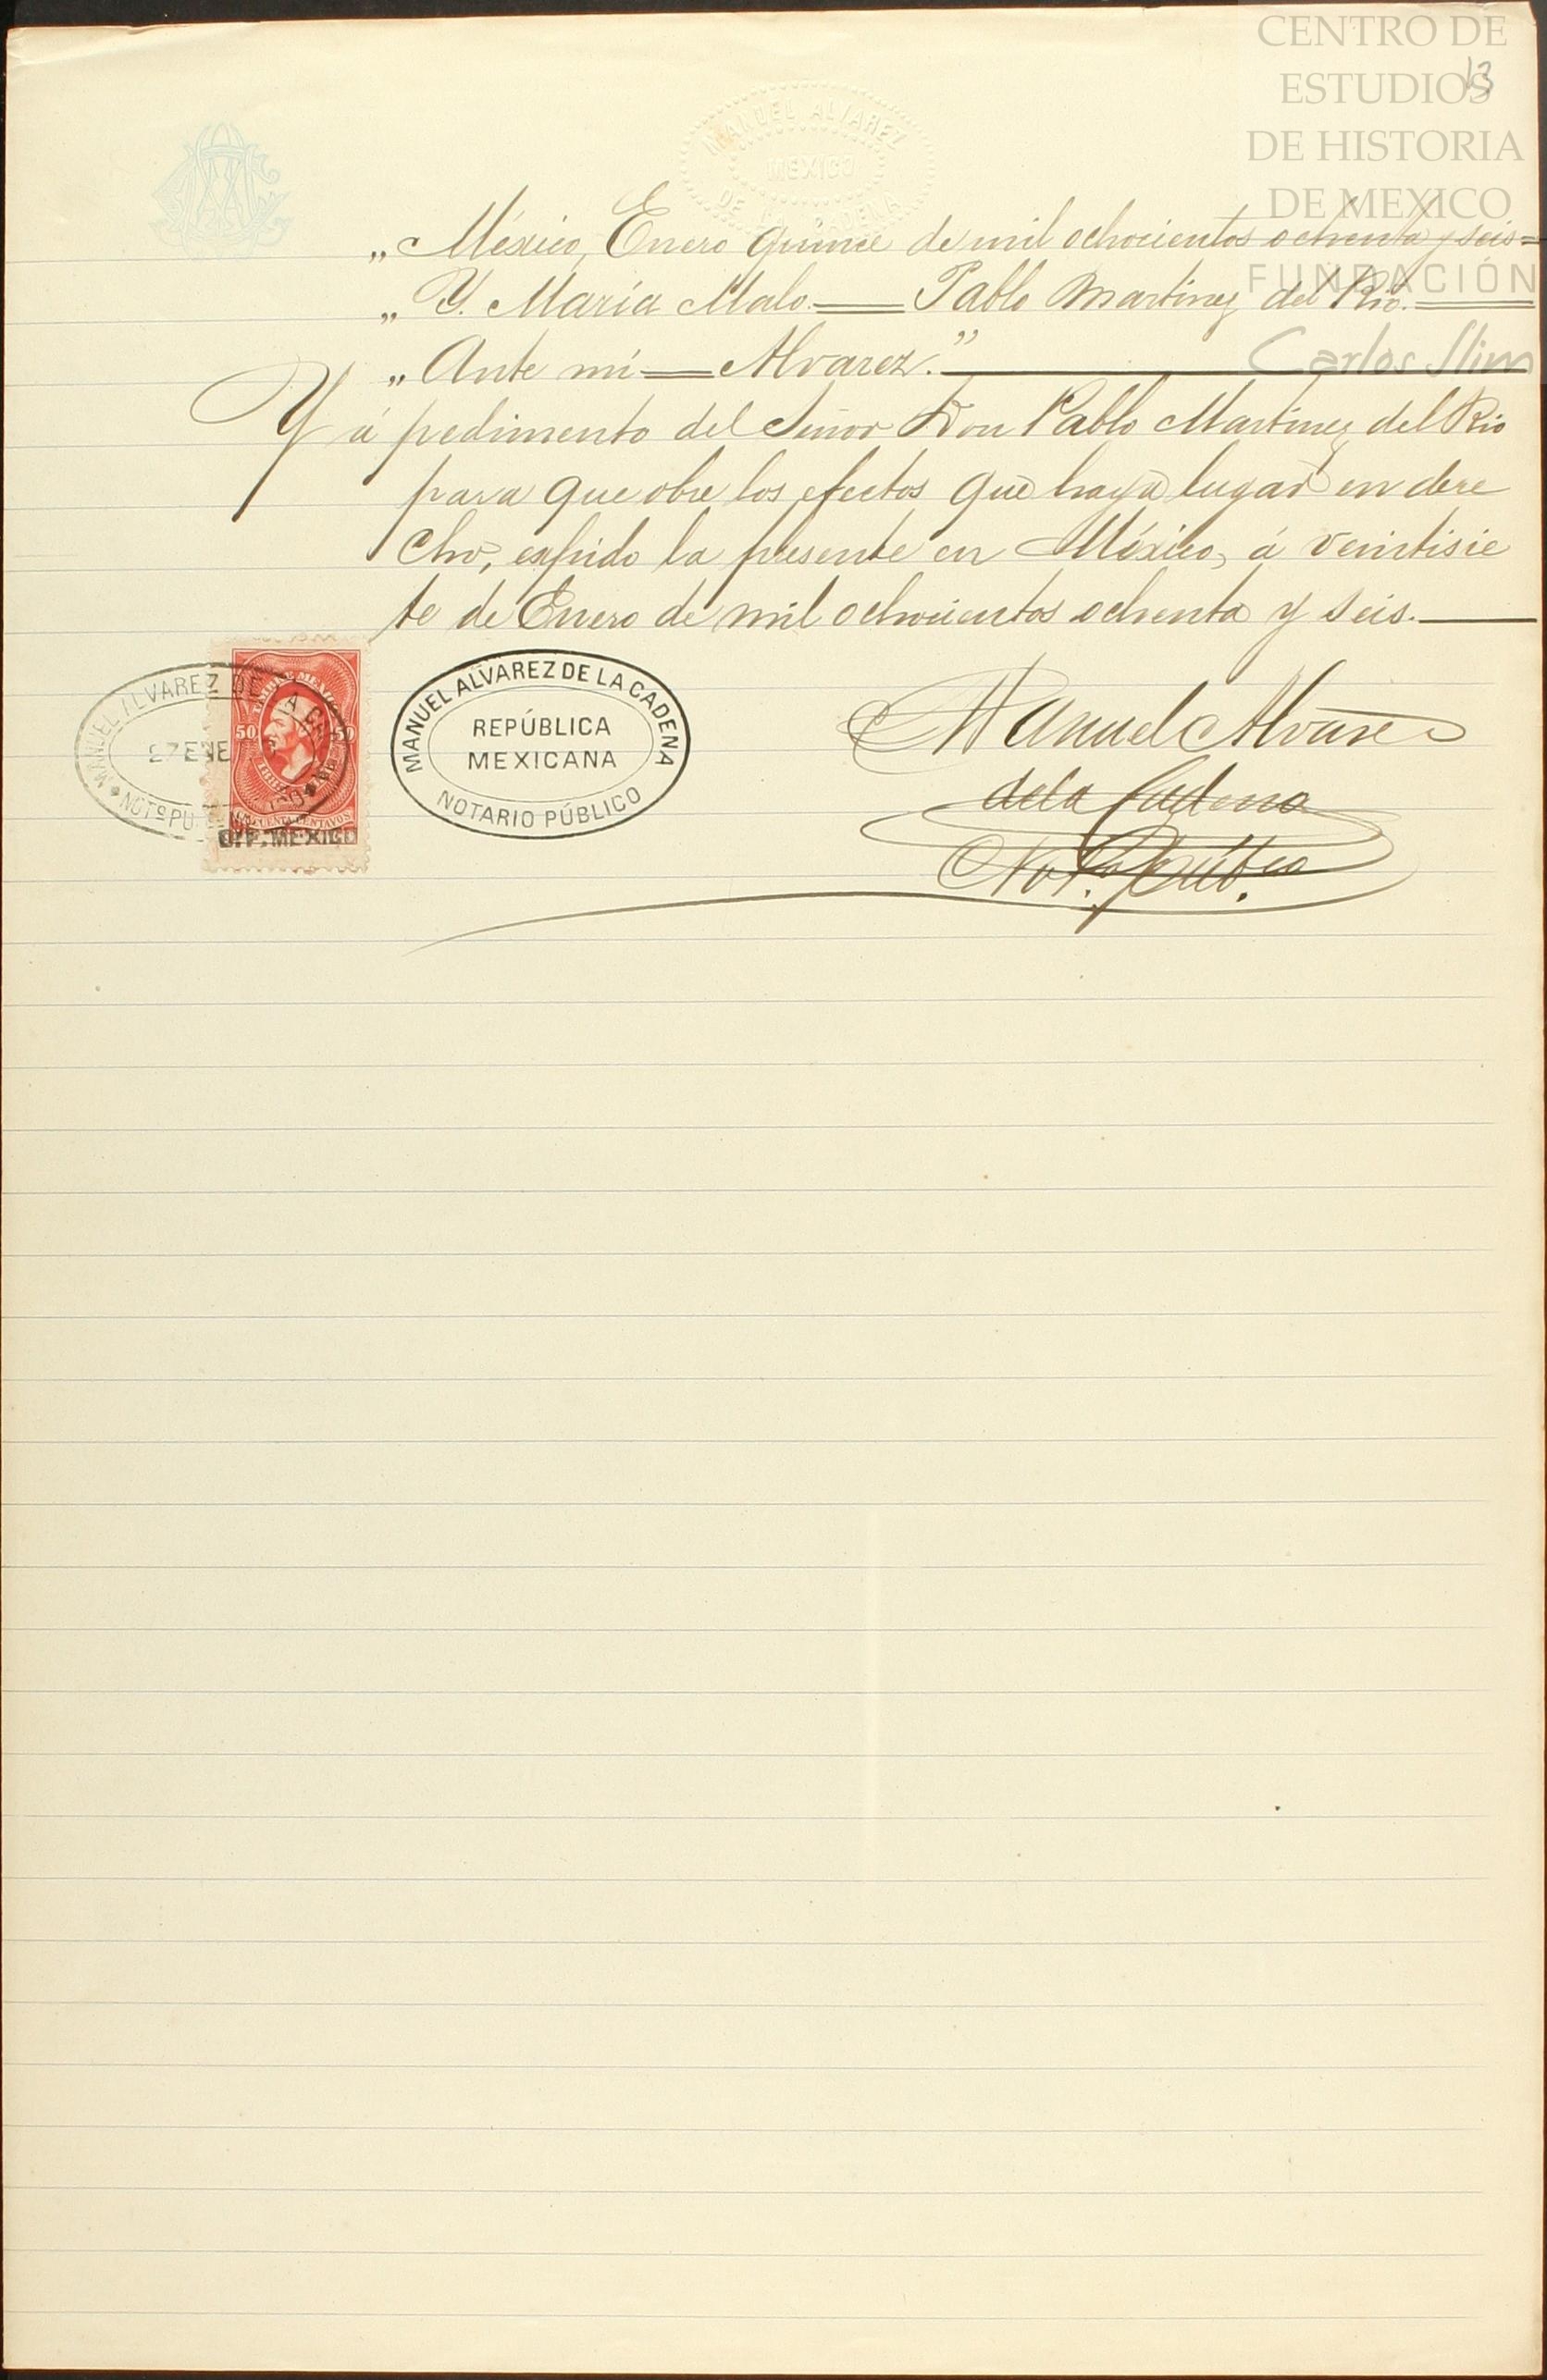 CENTRO DE
ESTUDIOS
DE HISTORIA
DE MEXICO
FUNDACIÓN
Carlos Slim
13
MANUEL ALVAREZ
MEXICO
DE LA CADENA
„México, Enero quince de mil ochocientos ochenta y seis=
„Y. María Malo.= Pablo Martinez del Rio.=
„Ante mí=Alvarez."
Y á pedimento del Señor Don Pablo Martinez del Rio
para que obre los efectos que haya lugar en dere
cho, expido la presente en México, á veintisie
te de Enero de mil ochocientos ochenta y seis.
MANUEL ALVAREZ DE LA CADENA
27 ENE
NOTº PU
50 50
CINCUENTA CENTAVOS
D.F. MEXICO
MANUEL ALVAREZ DE LA CADENA
REPÚBLICA
MEXICANA
NOTARIO PÚBLICO
Manuel Alvarez
de la Cadena
Not. Púb.